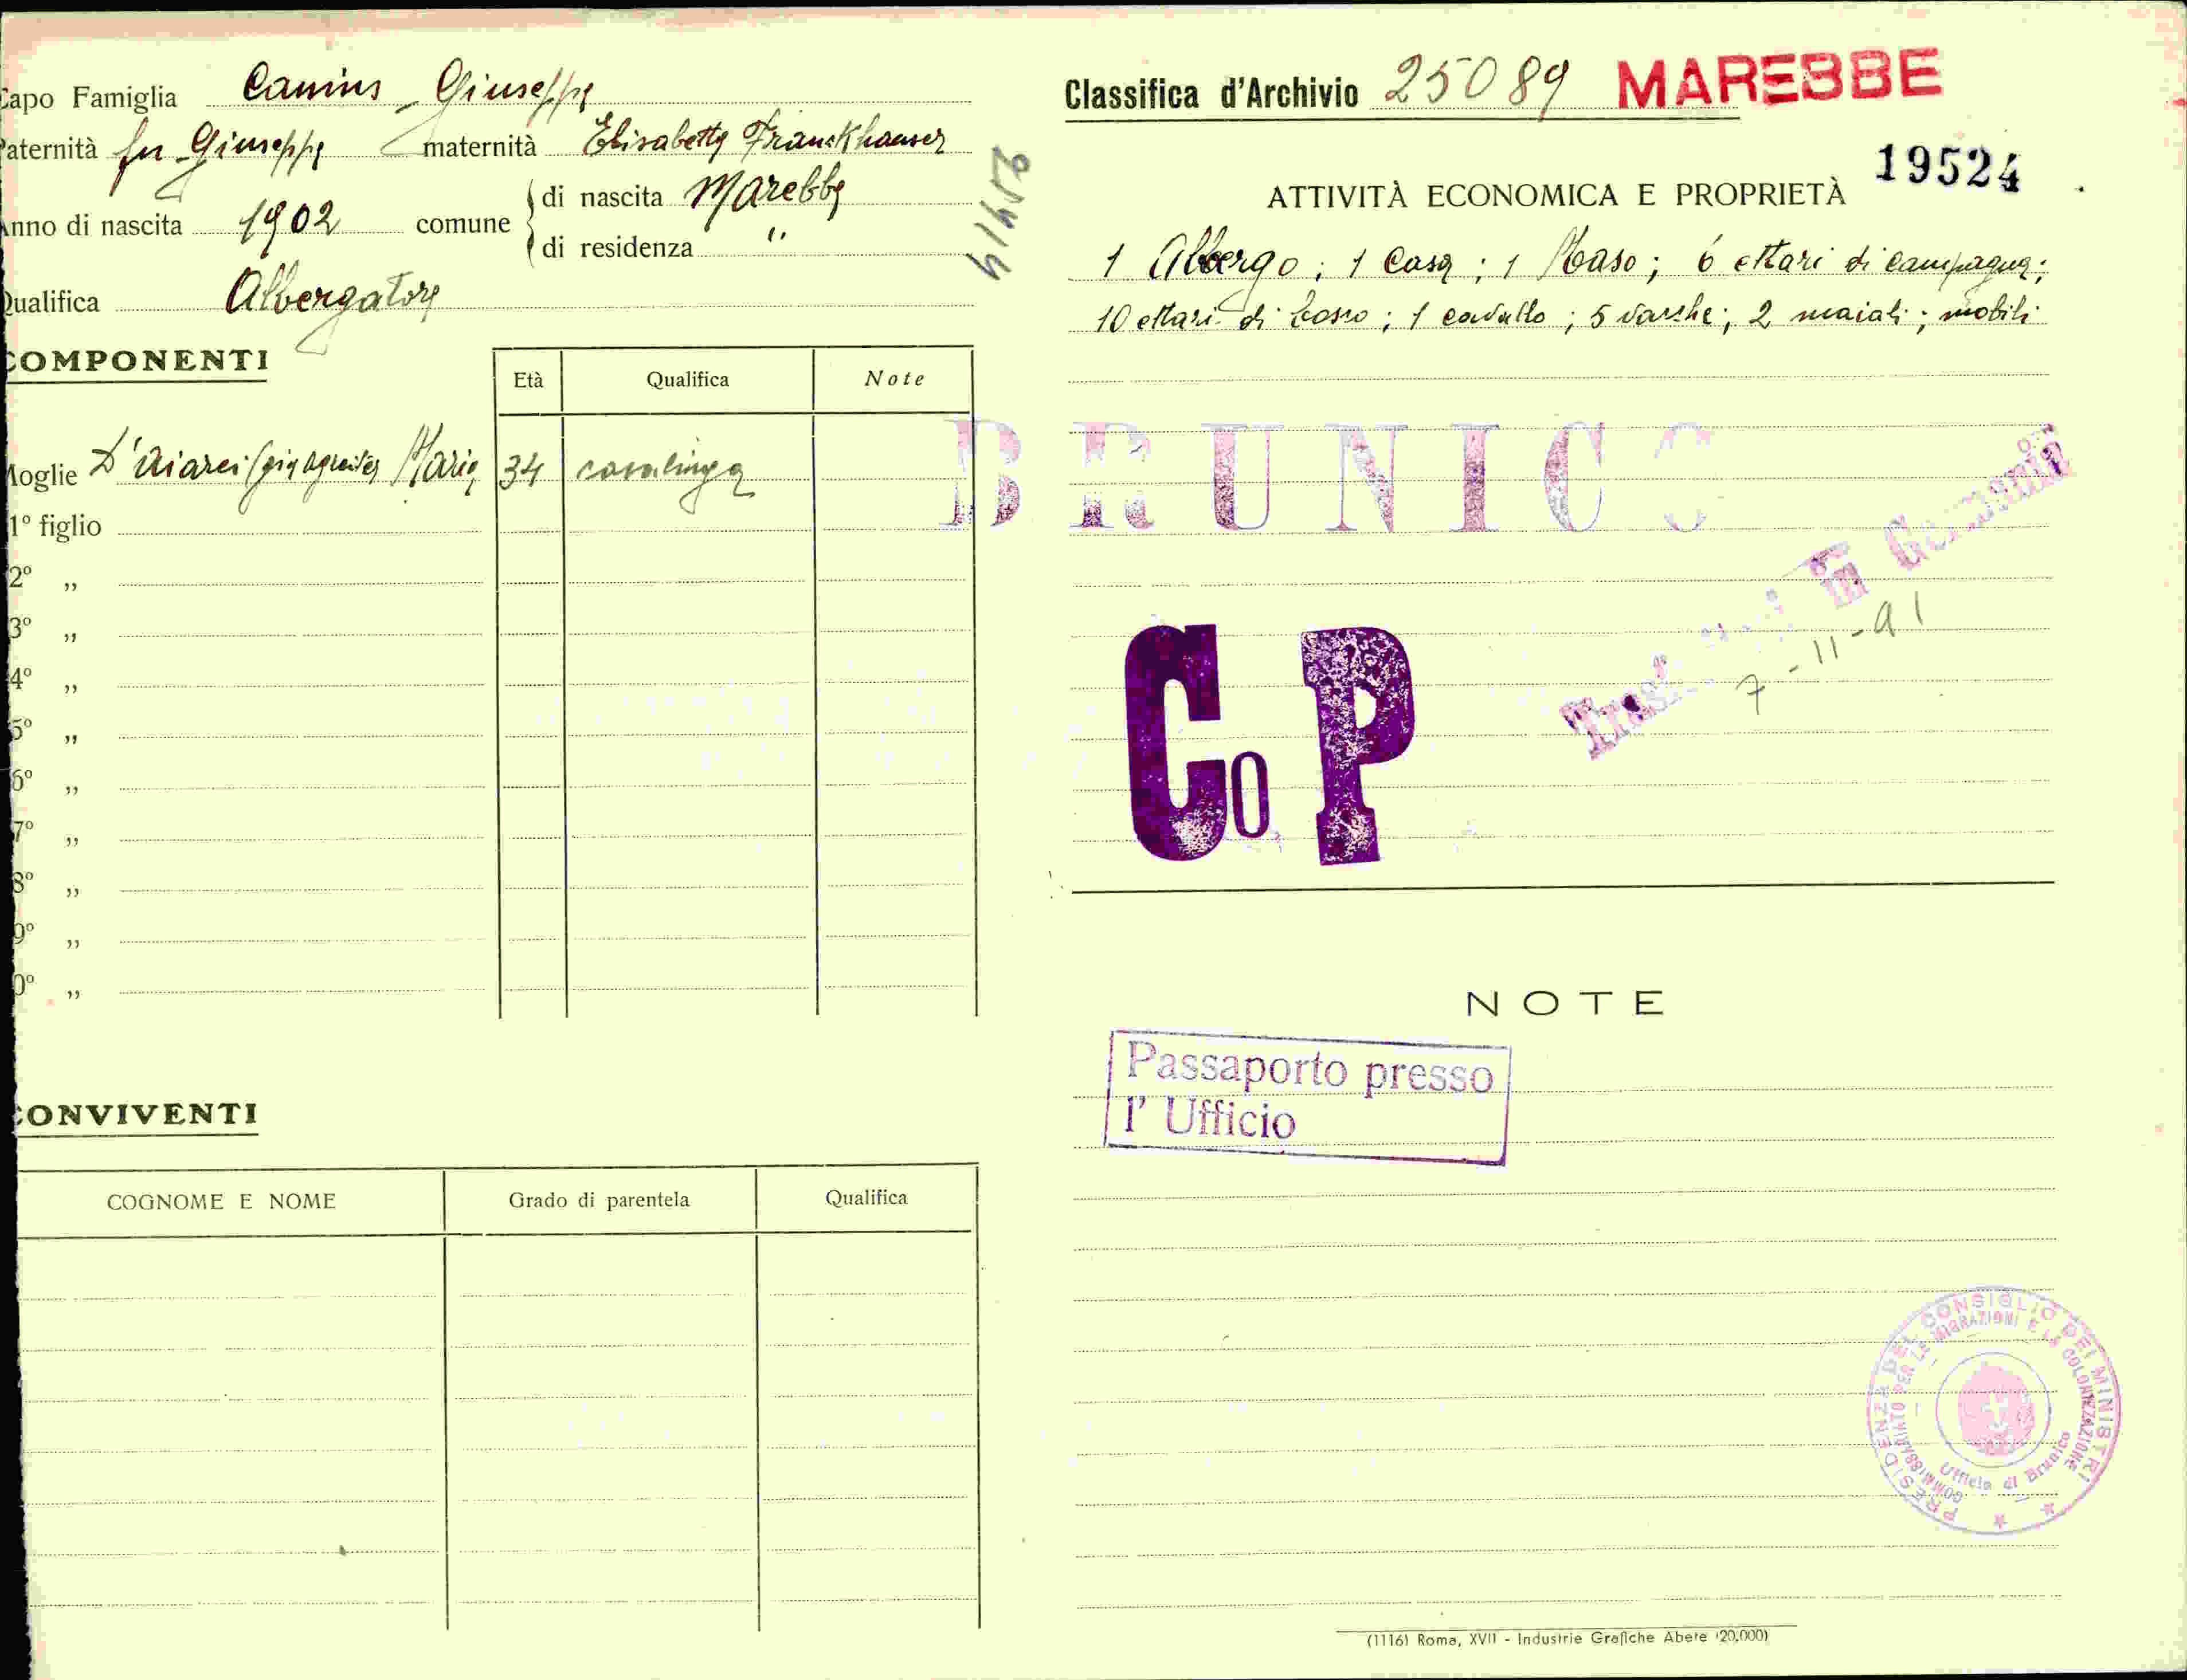 Capo Famiglia Canins Giuseppe
Paternità fu Giuseppe maternità Elisabetta Franckhauser
Anno di nascita 1902 comune
di nascita Marebbe
di residenza "
Qualifica Albergatore
COMPONENTI
Età Qualifica Note
Moglie Maria 34 casalinga
1º figlio
2º „
3º „
4º „
5º „
6º „
7º „
8º „
9º „
0º „
CONVIVENTI
COGNOME E NOME Grado di parentela Qualifica
Classifica d'Archivio 25089 MAREBBE
19524
ATTIVITÀ ECONOMICA E PROPRIETÀ
1 Albergo; 1 Casa; 1 Maso; 6 ettari di campagna;
10 ettari di bosco; 1 cavallo; 5 vacche; 2 maiali; mobili
BRUNICO
in Germania
7-11-41
Co P
NOTE
Passaporto presso
l' Ufficio
PRESIDENZA DEL CONSIGLIO DEI MINISTRI
COMMISSARIATO PER LE MIGRAZIONI E LA COLONIZZAZIONE
Ufficio di Brunico
(1116) Roma, XVII - Industrie Grafiche Abete (20.000)